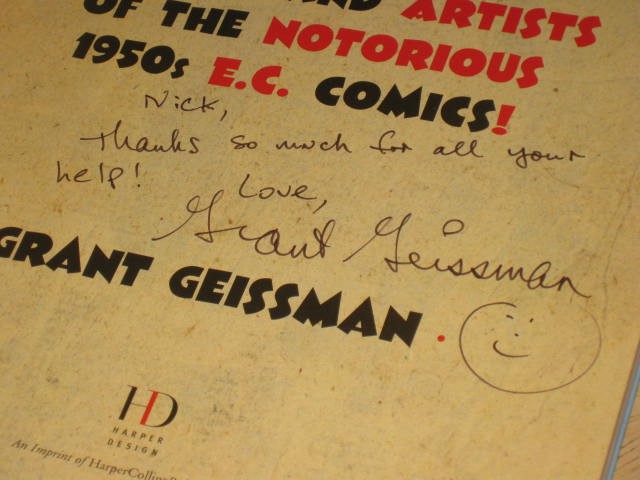 AND ARTISTS
OF THE NOTORIOUS
1950s E.C. COMICS!
Nick,
Thanks so much for all your
help!
Love,
Grant Geissman
GRANT GEISSMAN
HD
HARPER
DESIGN
An Imprint of HarperCollins